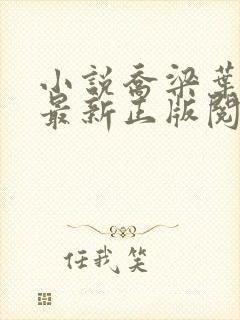 小說喬梁葉
最新正版閱
任我笑